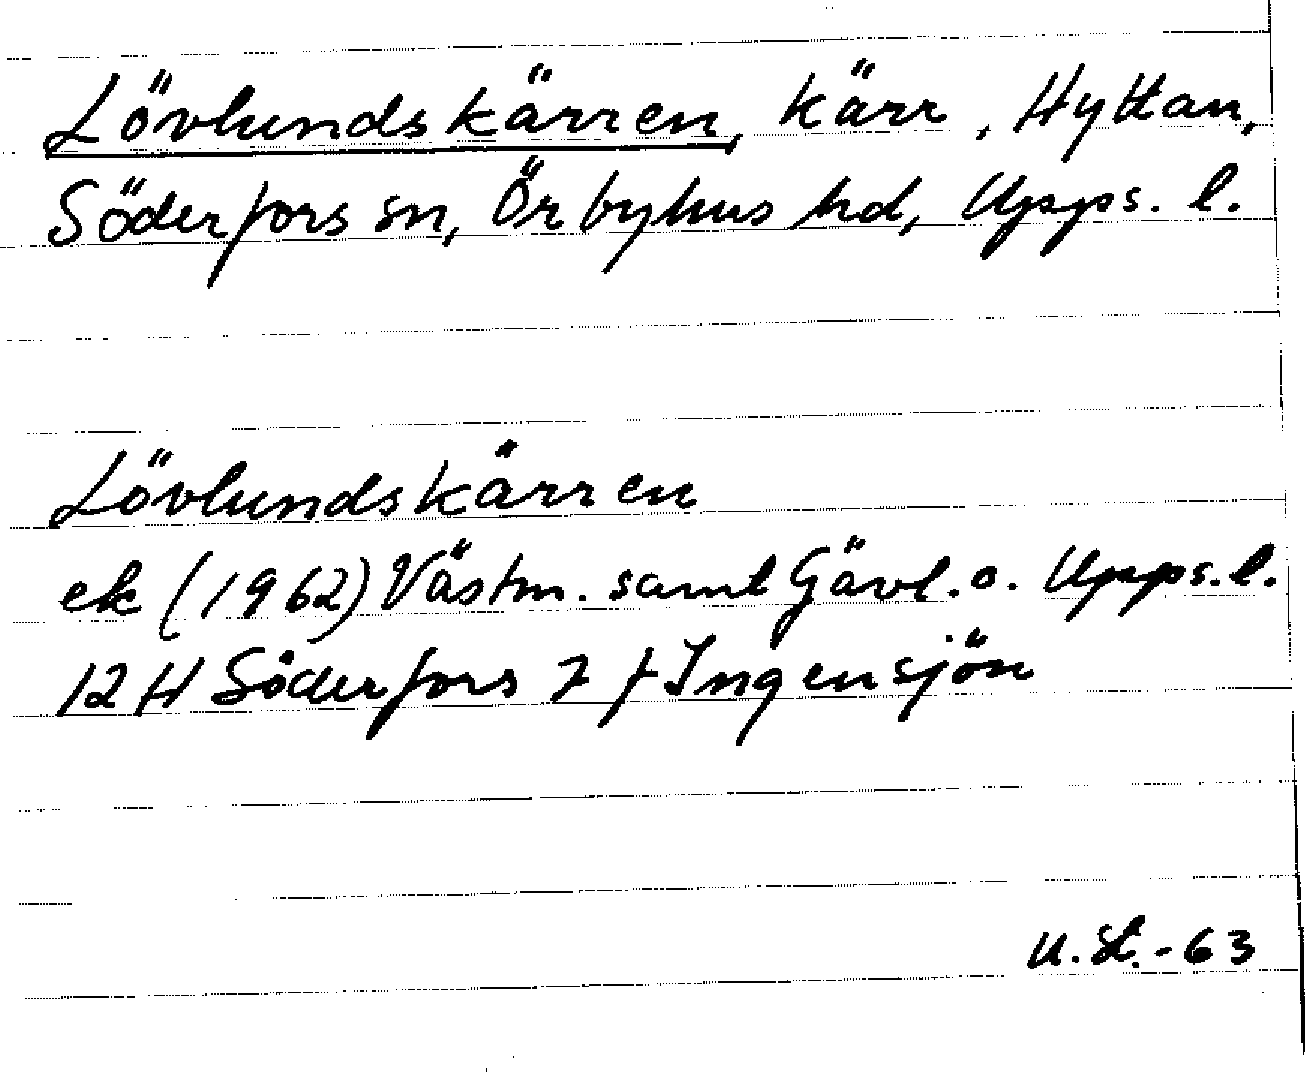 Lövlundskärren, kärr, Hyttan,
Söderfors sn, Örbyhus hd, Upps. l.
Lövlundskärren
ek (1962) Västm. samt Gävl. o. Upps. l.
12 H Söderfors 7 f Ingensjön
U. St. -63